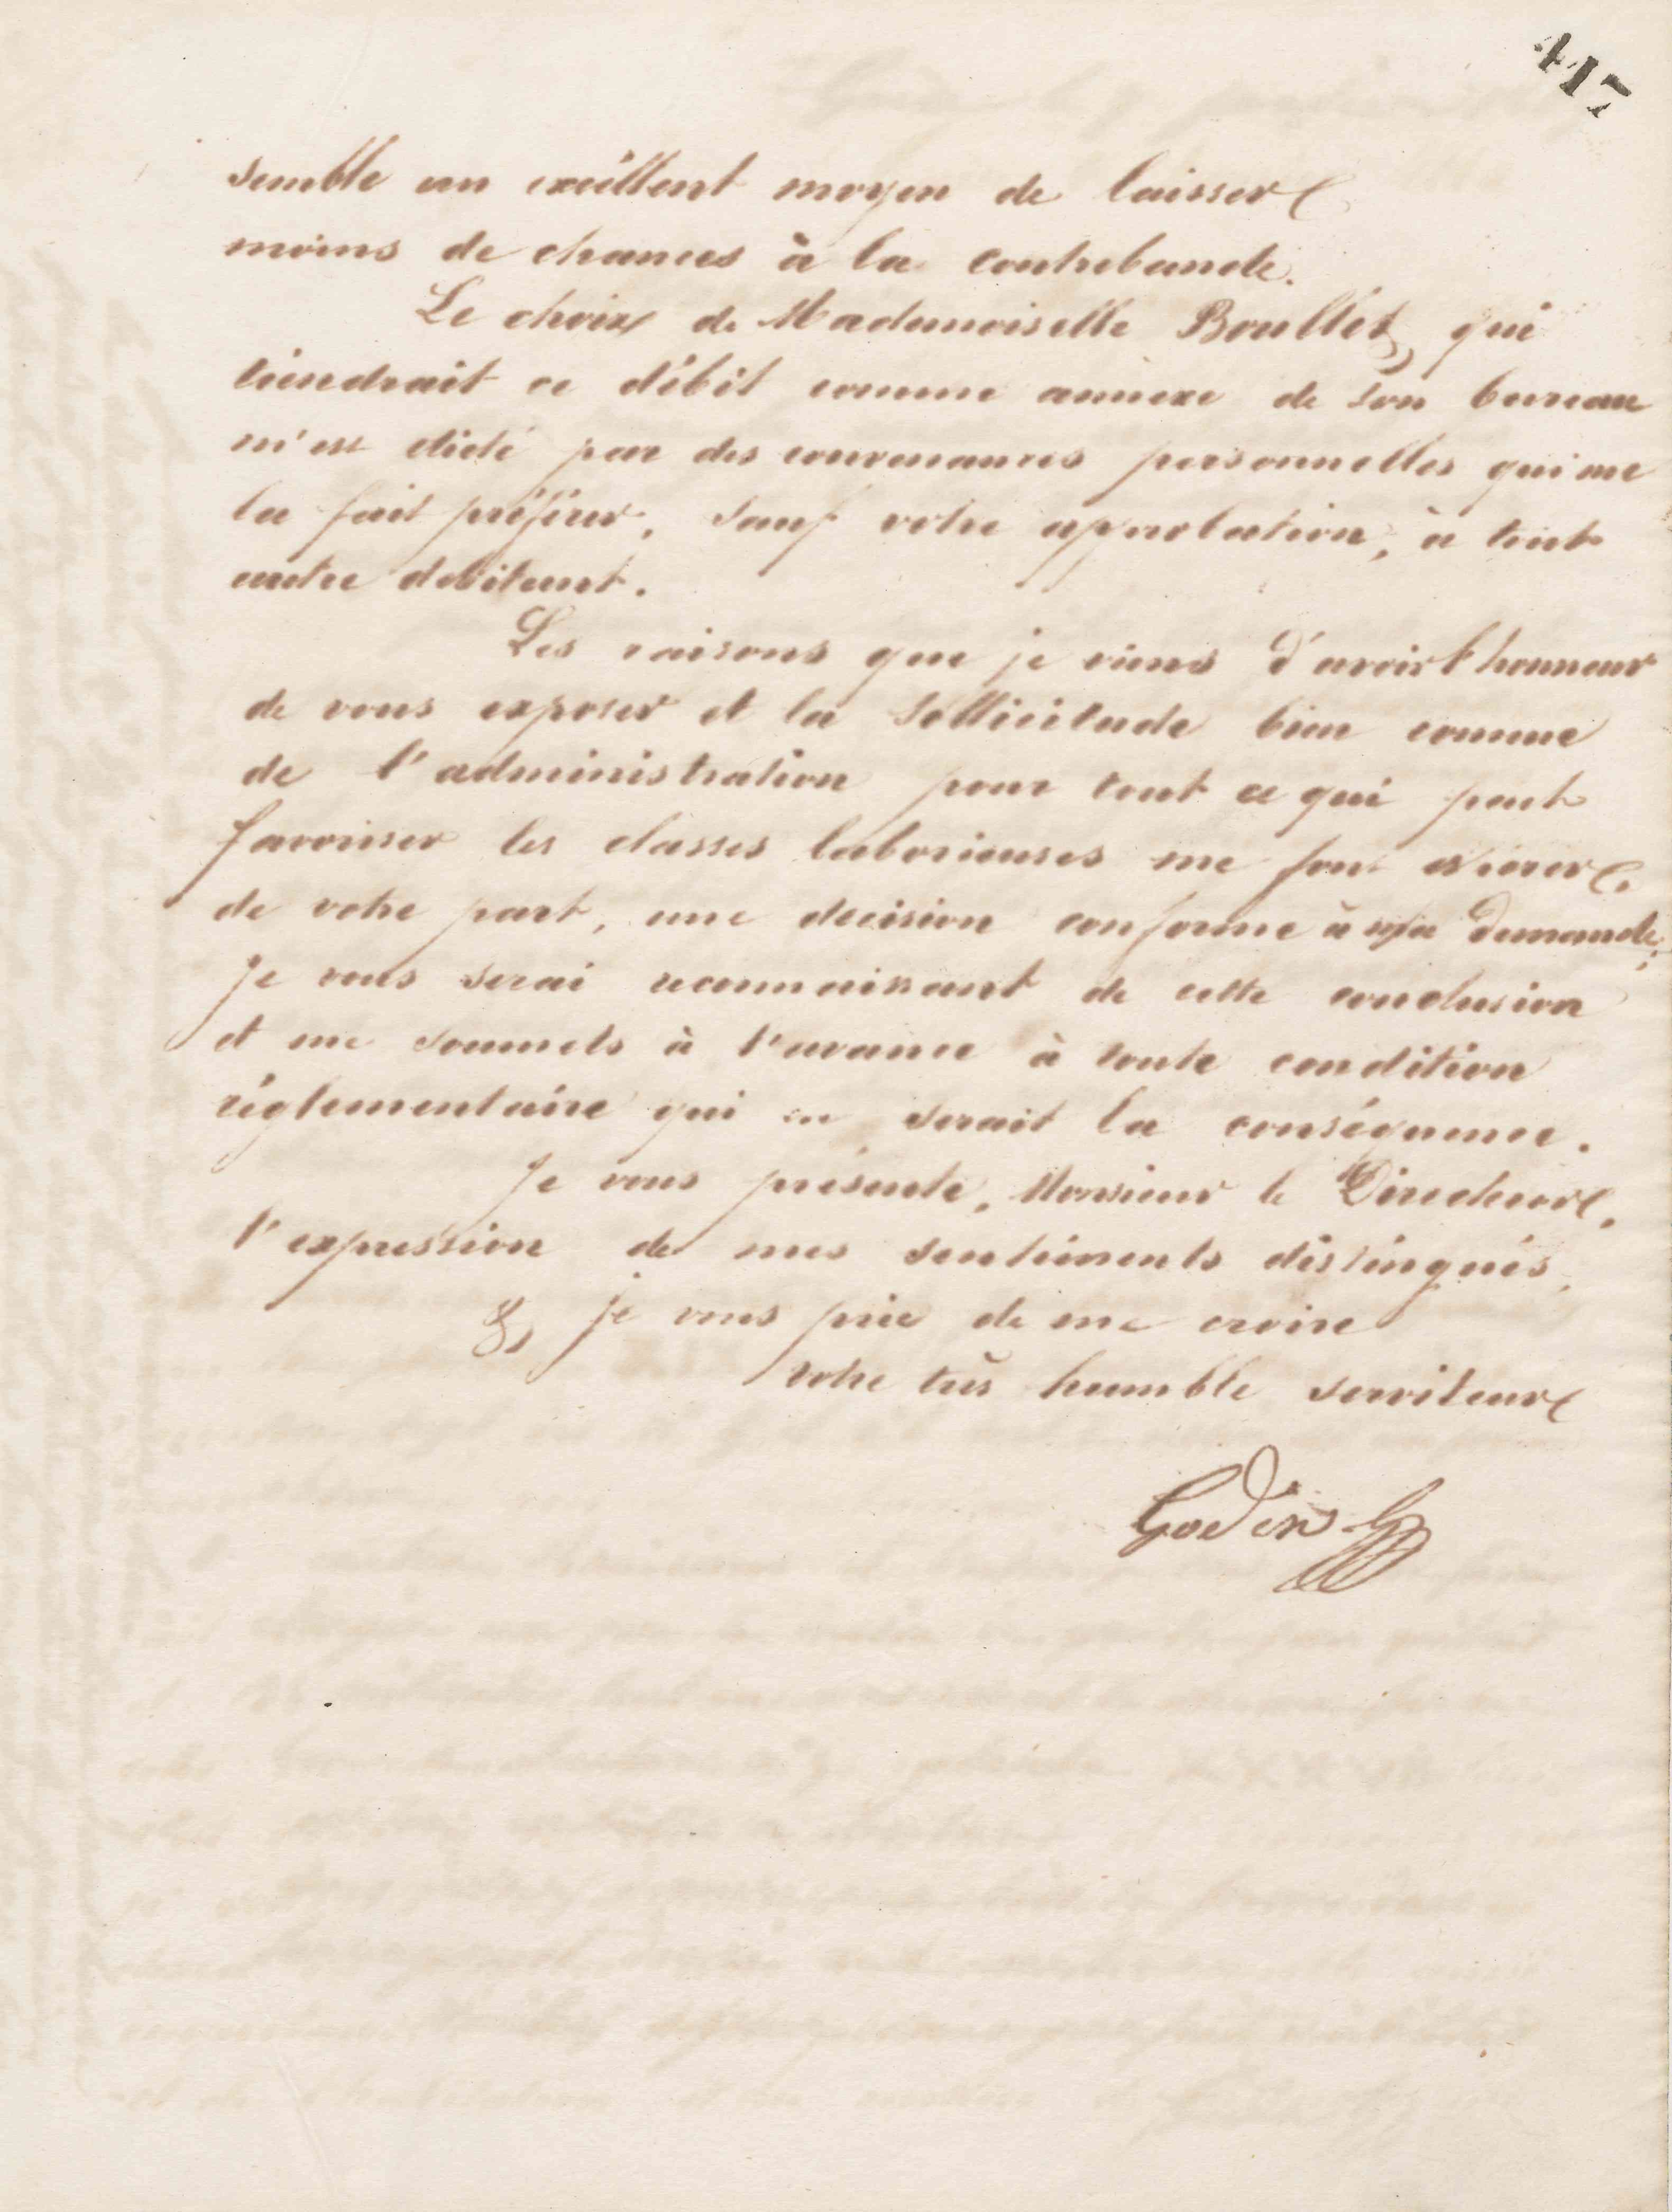 417
semble un excéllent moyen de laisser
moins de chances à la contrebande.
Le choix de Mademoiselle Boullet qui
tiendrait ce débit comme annexe de son bureau
m'est dicté par des convenances personnelles qui me
la fait préférer, sauf votre approbation, à tout
autre debitant.
Les raisons que je viens d'avoir l'honneur
de vous exposer et la sollicitude bien connue
de l'administration pour tout ce qui peut
favoriser les classes laborieuses me font espérer
de votre part, une decision conforme à ma demande;
je vous serai reconnaissant de cette conclusion
et me soumets à l'avance à toute condition
réglementaire qui en serait la conséquence.
Je vous présente, Monsieur le Directeur,
l'expression de mes sentiments distingués,
& je vous prie de me croire
votre très humble serviteur
Godin